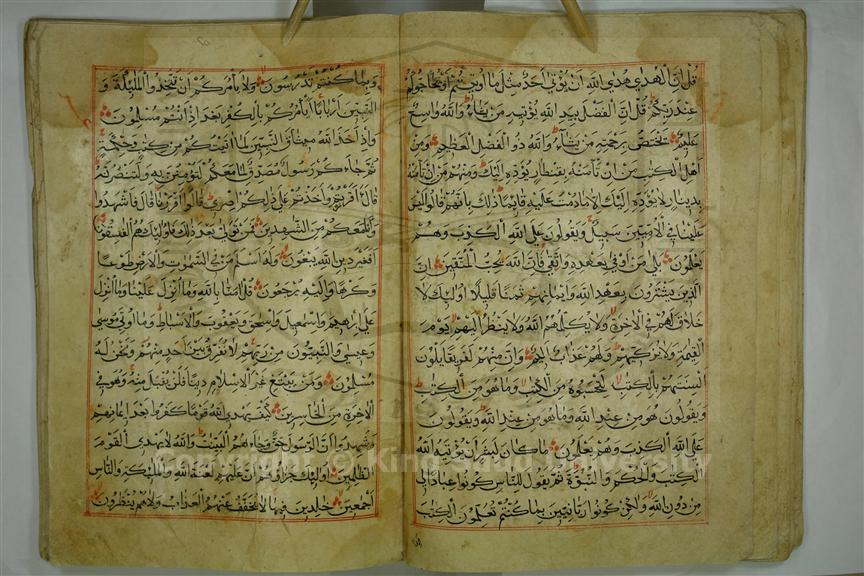 قل ان الهدى هدى الله ان يؤتى احد مثل ما اوتيتم او يحاجوكم
عند ربكم قل ان الفضل بيد الله يؤتيه من يشاء والله واسع
عليم يختص برحمته من يشاء والله ذو الفضل العظيم ومن
اهل الكتب من ان تامنه بقنطار يؤده اليك ومنهم من ان تامنه
بدينار لا يؤده اليك الا ما دمت عليه قائما ذلك بانهم قالوا ليس
علينا في الامين سبيل ويقولون على الله الكذب وهم
يعلمون بلى من اوفى بعهده واتقى فان الله يحب المتقين ان
الذين يشترون بعهد الله وايمانهم ثمنا قليلا اولئك لا
خلاق لهم في الاخرة ولا يكلمهم الله ولا ينظر اليهم يوم
القيمة ولا يزكيهم ولهم عذاب اليم وان منهم لفريقا يلون
السنتهم بالكتب لتحسبوه من الكتب وما هو من الكتب
ويقولون هو من عند الله وما هو من عند الله ويقولون
على الله الكذب وهم يعلمون ما كان لبشر ان يؤتيه الله
الكتب والحكم والنبوة ثم يقول للناس كونوا عبادا لي
من دون الله ولكن كونوا ربانيين بما كنتم تعلمون الكتب
وبما كنتم تدرسون ولا يامركم ان تتخذوا الملئكة و
النبين اربابا ايامركم بالكفر بعد اذ انتم مسلمون
واذ اخذ الله ميثاق النبين لما اتيتكم من كتب وحكمة
ثم جاءكم رسول مصدق لما معكم لتؤمنن به ولتنصرنه
قال ءاقررتم واخذتم على ذلكم اصري قالوا اقررنا قال فاشهدوا
وانا معكم من الشهدين فمن تولى بعد ذلك فاولئك هم الفسقون
افغير دين الله يبغون وله اسلم من في السموت والارض طوعا
وكرها واليه يرجعون قل امنا بالله وما انزل علينا وما انزل
على ابرهيم واسمعيل واسحق ويعقوب والاسباط وما اوتي موسى
وعيسى والنبيون من ربهم لا نفرق بين احد منهم ونحن له
مسلمون ومن يبتغ غير الاسلام دينا فلن يقبل منه وهو في
الاخرة من الخاسرين كيف يهدي الله قوما كفروا بعد ايمانهم
وشهدوا ان الرسول حق وجاءهم البينت والله لا يهدي القوم
الظلمين اولئك جزاؤهم ان عليهم لعنة الله والملئكة والناس
اجمعين خلدين فيها لا يخفف عنهم العذاب ولا هم ينظرون
Copyright © King Saud University